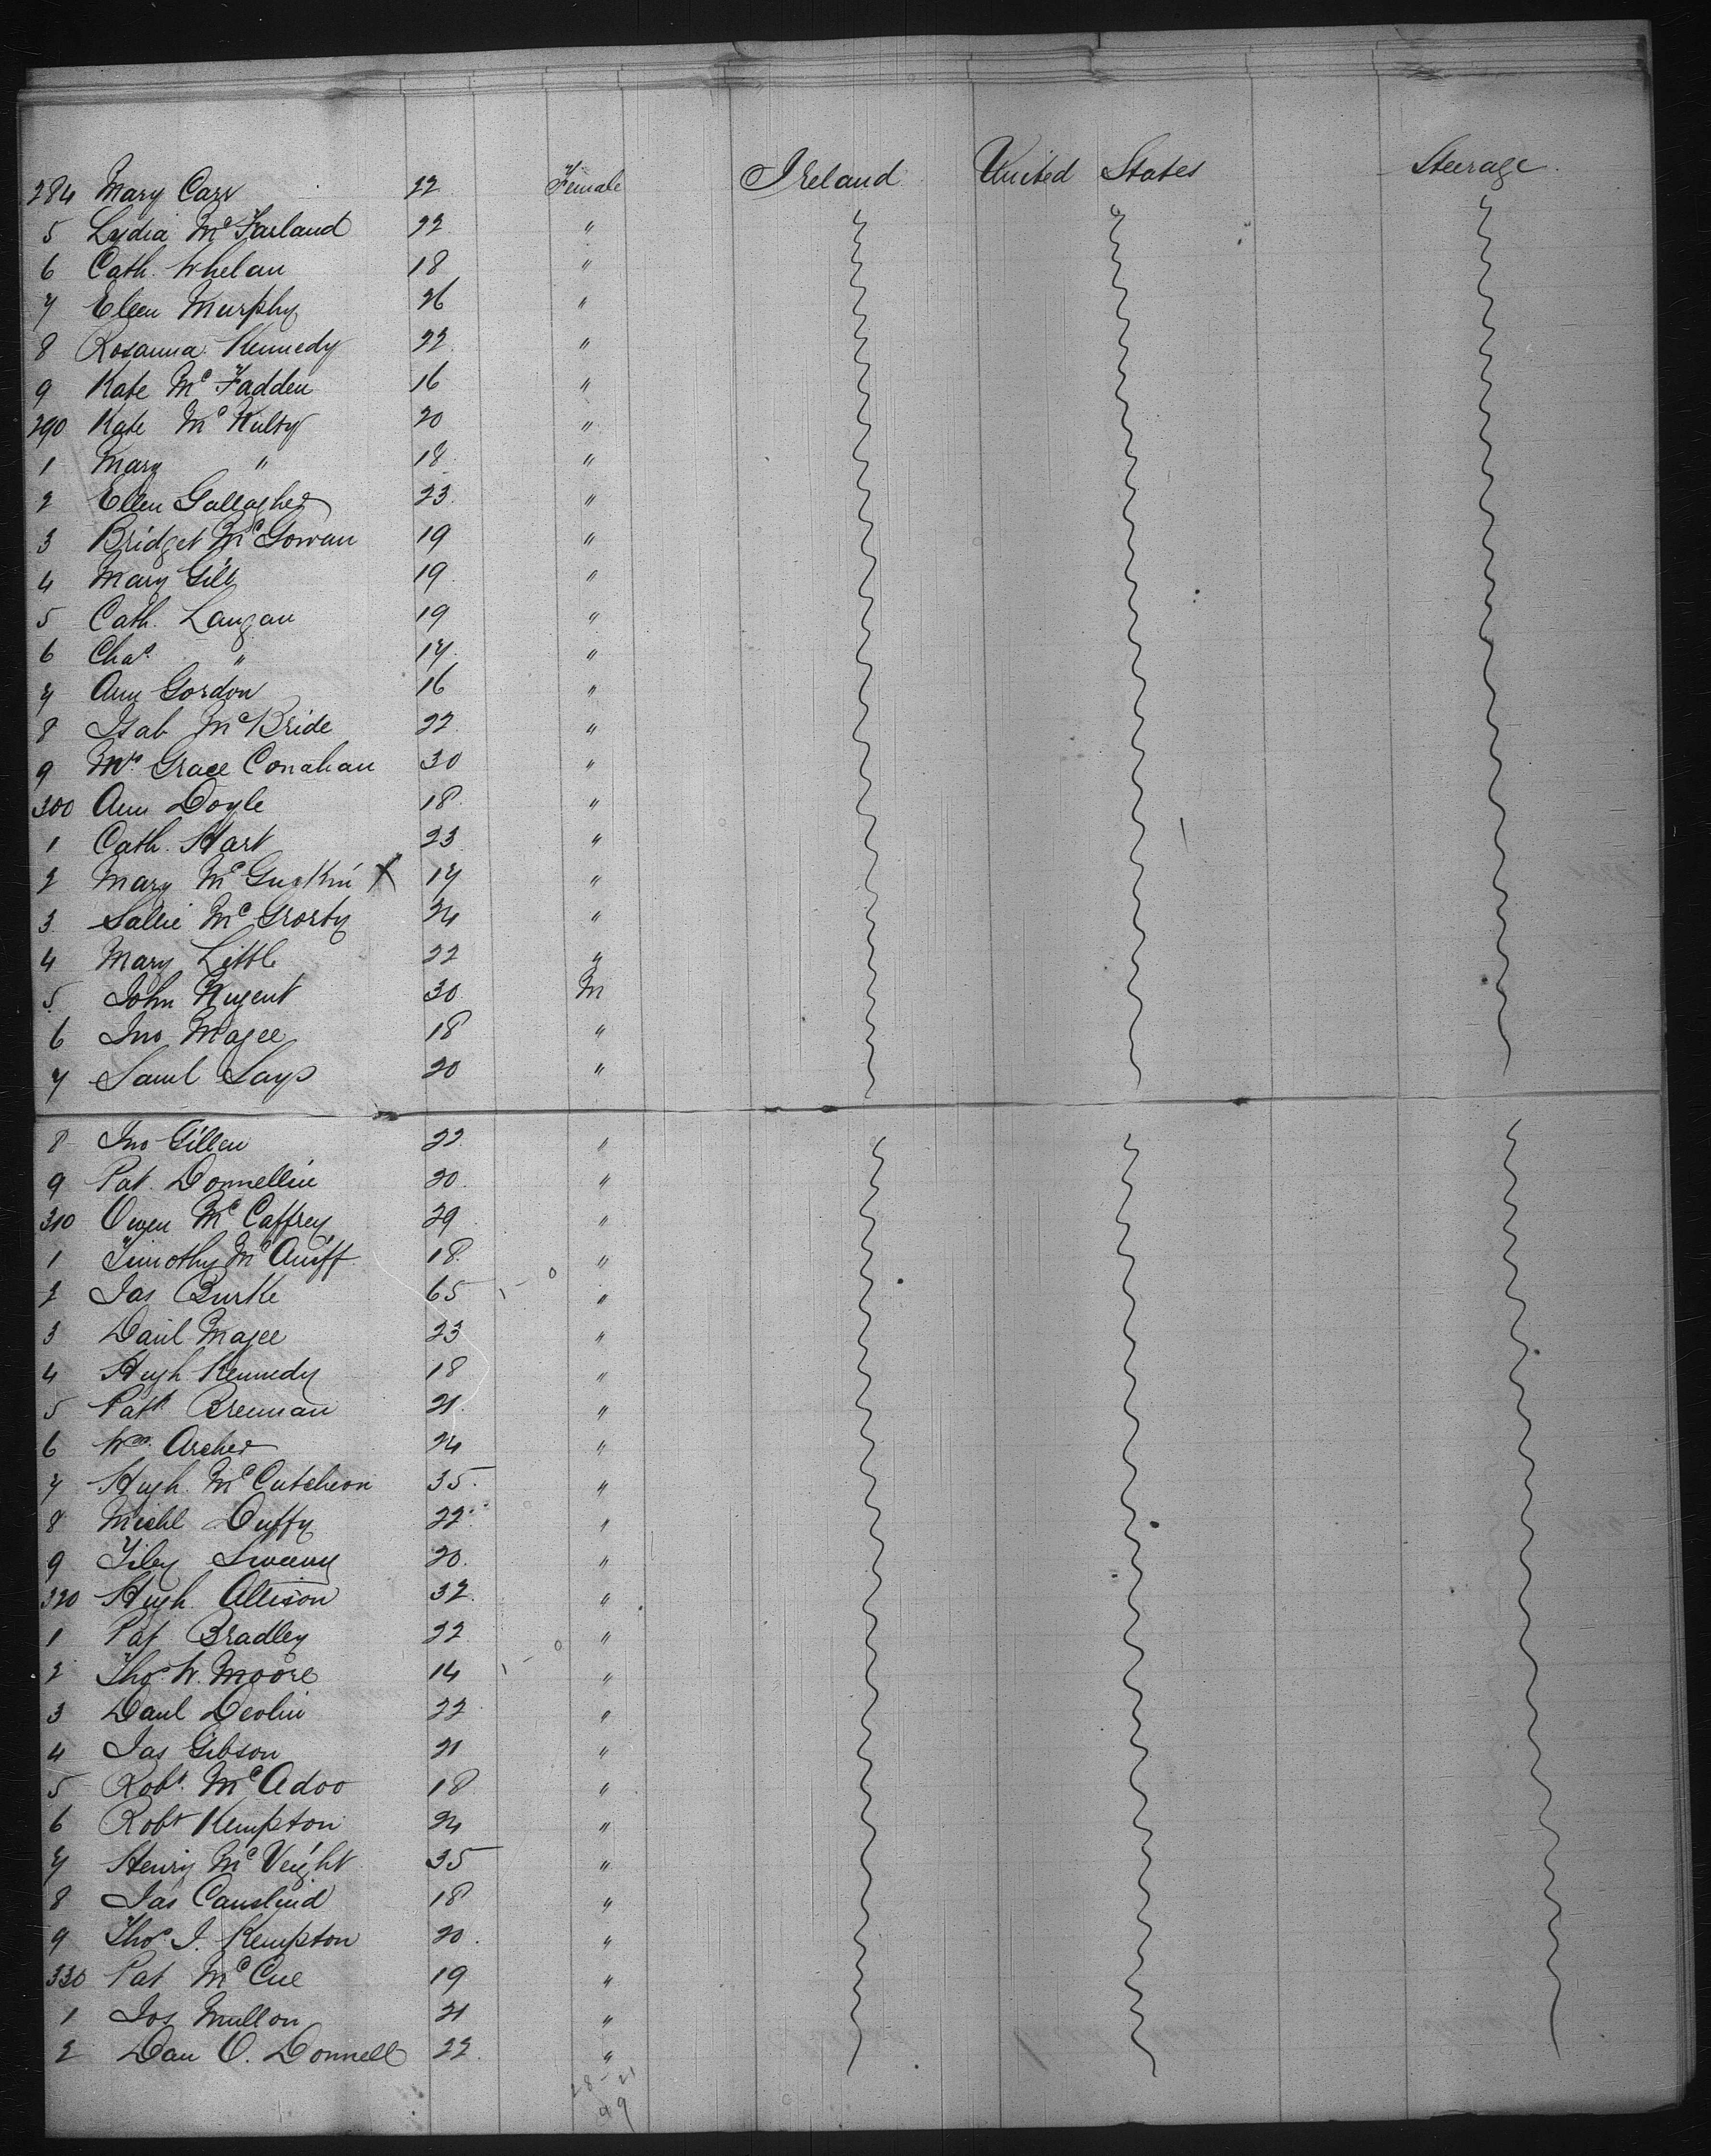 284 Mary Carr 22 Female Ireland United States Steerage
5 Lydia McFarland 22 "
6 Cath. Whelan 18 "
7 Ellen Murphy 26 "
8 Rosanna Kennedy 22 "
9 Kate McFadden 16 "
290 Kate McNulty 20 "
1 Mary " 18 "
2 Ellen Gallagher 23 "
3 Bridget McGowan 19 "
4 Mary Gill 19 "
5 Cath. Langan 19 "
6 Chas " 17 "
7 Ann Gordon 16 "
8 Isab McBride 22 "
9 Mrs Grace Conahan 30 "
300 Ann Doyle 18 "
1 Cath. Hart 23 "
2 Mary McGuckin X 17 "
3 Sallie McGrorty 24 "
4 Mary Little 22 "
5 John Nugent 30 M
6 Jno Magee 18 "
7 Saml Lays 20 "
8 Jno Gillen 22 "
9 Pat. Donnellin 30 "
310 Owen McCaffrey 29 "
1 Timothy McAuiff 18 "
2 Jas Burke 65 "
3 Danl Magee 23 "
4 Hugh Kennedy 18 "
5 Patk Brennan 21 "
6 Wm. Archer 24 "
7 Hugh McCutcheon 35 "
8 Michl Duffy 22 "
9 Sweeny 20 "
320 Hugh Allison 32 "
1 Pat Bradley 22 "
2 Thos W. Moore 14 "
3 Danl Devlin 22 "
4 Jas Gibson 21 "
5 Robt. McAdoo 18 "
6 Robt Kempton 24 "
7 Henry McVeight 35 "
8 Jas 18 "
9 Thos J. Kempton 20 "
330 Pat McCue 19 "
1 Jos Mullon 21 "
2 Dan O. Donnell 22 "
28 21
49